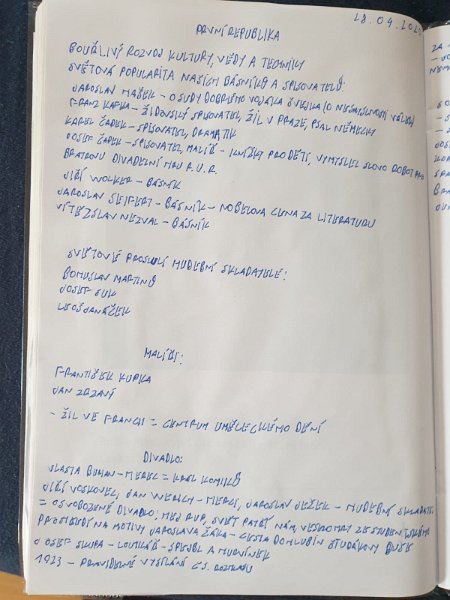 28.04.202
PRVNÍ REPUBLIKA
BOUŘLIVÝ ROZVOJ KULTURY, VĚDY A TECHNIKY
SVĚTOVÁ POPULARITA NAŠICH BÁSNÍKŮ A SPISOVATELŮ
JAROSLAV HAŠEK - OSUDY DOBRÉHO VOJÁKA ŠVEJKA (O NESMYSLNOSTI VÁLKY)
FRANZ KAFKA - ŽIDOVSKÝ SPISOVATEL, ŽIL V PRAZE, PSAL NĚMECKY
KAREL ČAPEK - SPISOVATEL, DRAMATIK
JOSEF ČAPEK - SPISOVATEL, MALÍŘ - KNÍŽKY PRO DĚTI, VYMYSLEL SLOVO ROBOT PRO
BRATROVU DIVADELNÍ HRU R.U.R.
JIŘÍ WOLKER - BÁSNÍK
JAROSLAV SEIFERT - BÁSNÍK - NOBELOVA CENA ZA LITERATURU
VÍTĚZSLAV NEZVAL - BÁSNÍK
SVĚTOVĚ PROSLULÍ HUDEBNÍ SKLADATELÉ:
BOHUSLAV MARTINŮ
JOSEF SUK
LEOŠ JANÁČEK
MALÍŘI:
FRANTIŠEK KUPKA
JAN ZRZAVÝ
- ŽIL VE FRANCII = CENTRUM UMĚLECKÉHO DĚNÍ
DIVADLO:
VLASTA BURIAN - HEREC = KRÁL KOMIKŮ
JIŘÍ VOSKOVEC, JAN WERICH - HERCI, JAROSLAV JEŽEK - HUDEBNÍ SKLADATEL
= OSVOBOZENÉ DIVADLO: HEJ RUP, SVĚT PATŘÍ NÁM, VESELOHRY ZE STUDENTSKÉHO
PROSTŘEDÍ NA MOTIVY JAROSLAVA ŽÁKA - CESTA DO HLUBIN ŠTUDÁKOVY DUŠE
JOSEF SKUPA - LOUTKÁŘ - SPEJBL A HURVÍNEK
1923 - PRAVIDELNÉ VYSÍLÁNÍ ČS. ROZHLASU